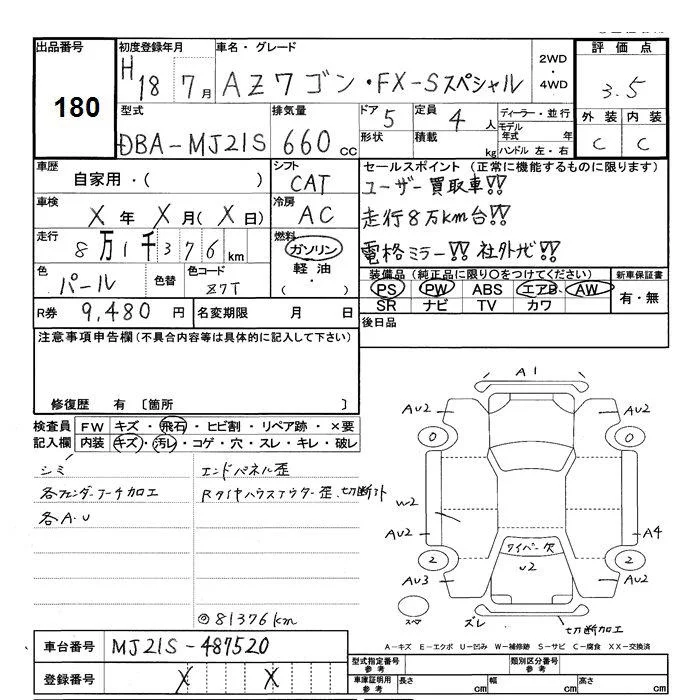 出品番号 初度登録年月 車名・グレード 2WD・4WD 評価点
180 H18 7月 AZワゴン・FX-Sスペシャル 3.5
型式 排気量 ドア 5 定員 4人 ディーラー・並行 外装 内装
DBA-MJ21S 660cc 形状 積載 kg モデル年式 年 ハンドル 左・右 C C
車歴 シフト セールスポイント (正常に機能するものに限ります)
自家用・( ) CAT ユーザー買取車!!
車検 冷房 走行8万km台!!
X年 X月(X日) AC 電格ミラー!! 社外ナビ!!
走行 8万1千376km 燃料 ガソリン 軽油・( )
色 パール 色替 色コード Z7T
装備品 (純正品に限り○をつけてください) 新車保証書
PS PW ABS エアB AW 有・無
SR ナビ TV カワ
R券 9,480円 名変期限 月 日 後日品
注意事項申告欄 (不具合内容等は具体的に記入して下さい)
修復歴 有 〔箇所 〕
検査員記入欄 FW キズ・飛石・ヒビ割・リペア跡・×要
内装 キズ・汚レ・コゲ・穴・スレ・キレ・破レ
シミ エンドパネル歪
各フェンダーアーチ加工 Rタイヤハウスアウター歪、切断アト
各A・U
◎81376km
A1
AU2 AU2
0 0
W2
AU2 A4
ワイパー欠
2 U2 2
AU3 AU2
スペア ズレ 切断加工
A-キズ E-エクボ U-凹み W-補修跡 S-サビ C-腐食 XX-交換済
車台番号 MJ21S-487520
登録番号 X X
型式指定番号 参考 類別区分番号 参考
車庫証明用 参考 長さ cm 幅 cm 高さ cm